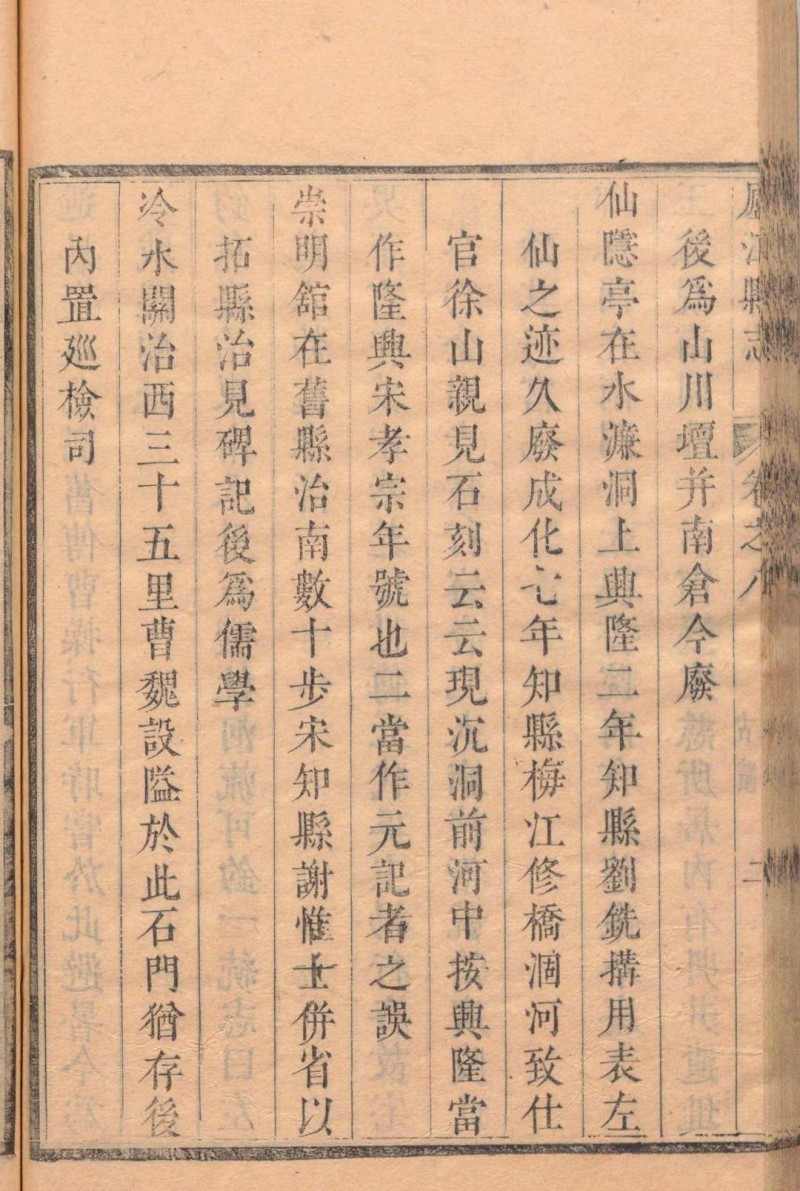 廬江縣志 卷之八 二
後爲山川壇并南倉今廢
仙隱亭在水濂洞上興隆二年知縣劉銑搆用表左
仙之迹久廢成化七年知縣梅江修橋涸河致仕
官徐山親見石刻云云現沉洞前河中按興隆當
作隆興宋孝宗年號也二當作元記者之誤
崇明舘在舊縣治南數十步宋知縣謝惟士併省以
拓縣治見碑記後爲儒學
冷水關治西三十五里曹魏設隘於此石門猶存後
內置廵檢司